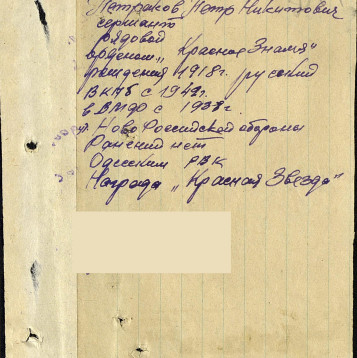 Петраков Петр Никитович
сержант
рядовой
орденом „Красная Знамя"
рождения 1918г. русский
ВКПб с 1942г.
в ВМФ с 1938г.
Ново Российской обороны
Ранений нет
Одесским РВК
Награда „Красная Звезда"